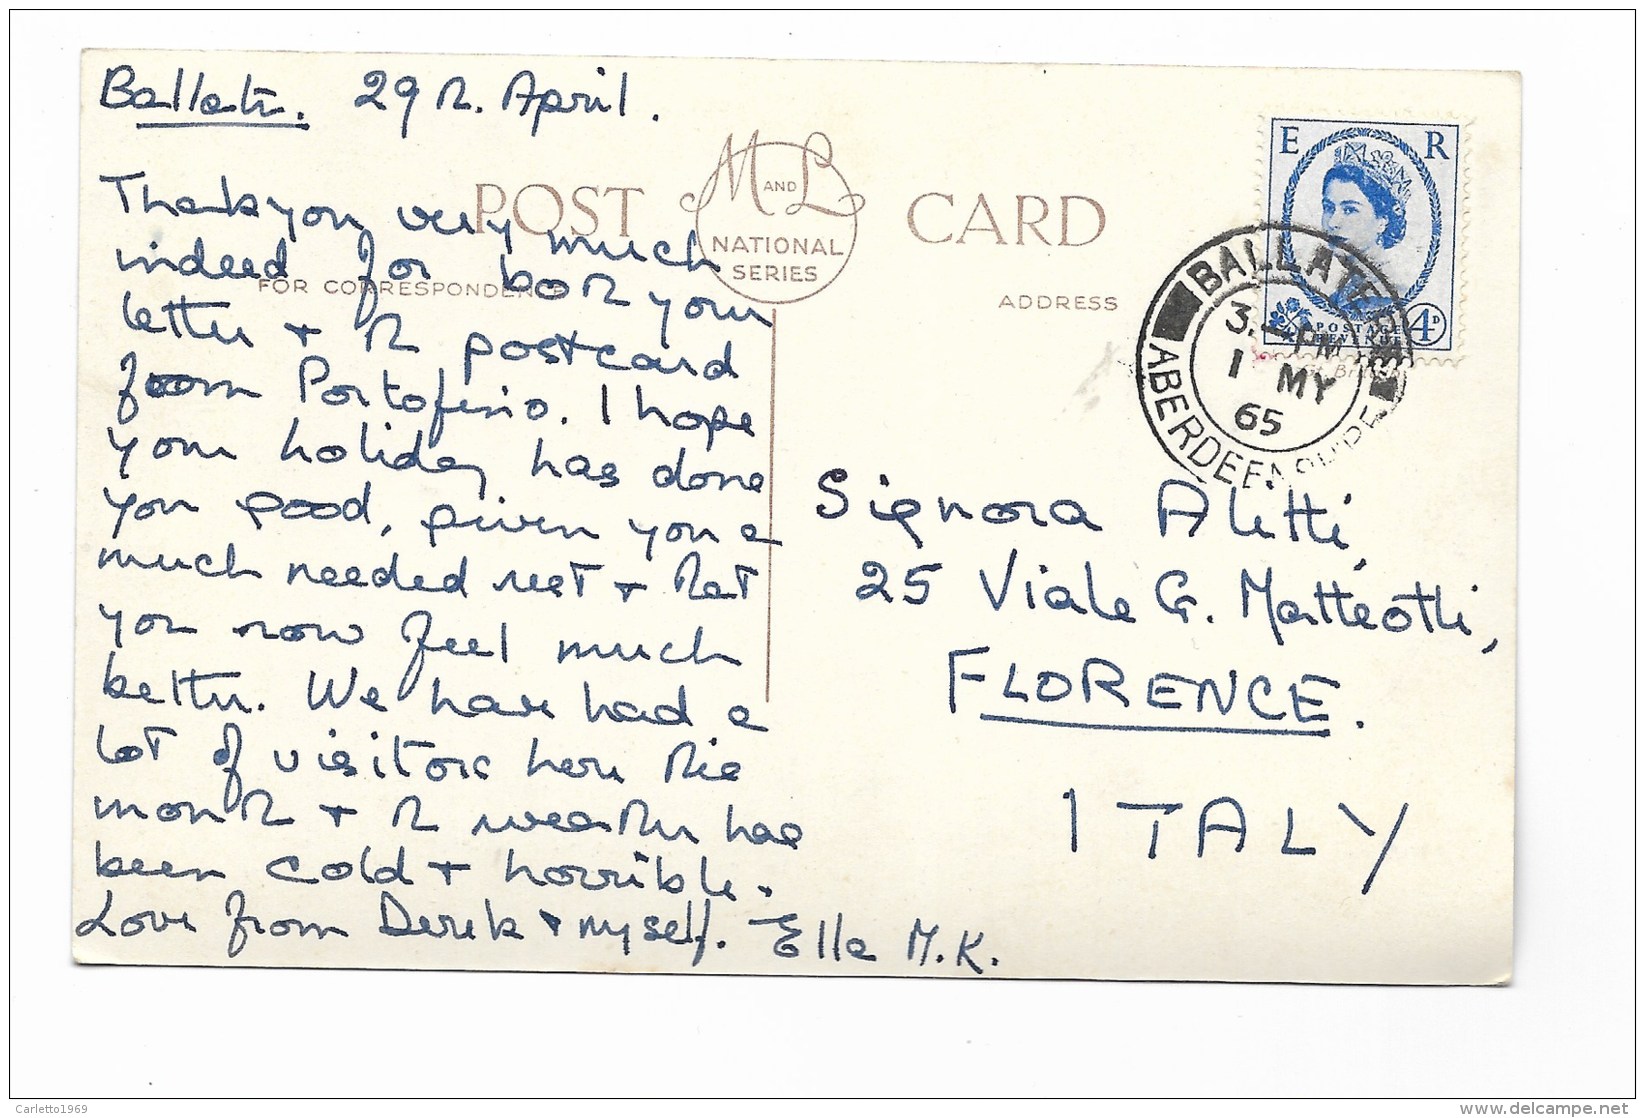 Ballater. 29th. April.
POST CARD
M AND L
NATIONAL
SERIES
FOR CORRESPONDENCE
ADDRESS
Thank you very much
indeed for both your
letter & the postcard
from Portofino. I hope
your holiday has done
you good, given you a
much needed rest & that
you now feel much
better. We have had a
lot of visitors here this
month & the weather has
been cold & horrible.
Love from Derek & myself. Ella M.K.
E R
POSTAGE
REVENUE
4D
BALLATER
3. PM
1 MY
65
ABERDEENSHIRE
Signora Aletti,
25 Viale G. Matteotti,
FLORENCE.
ITALY
Carletto1969
www.delcampe.net